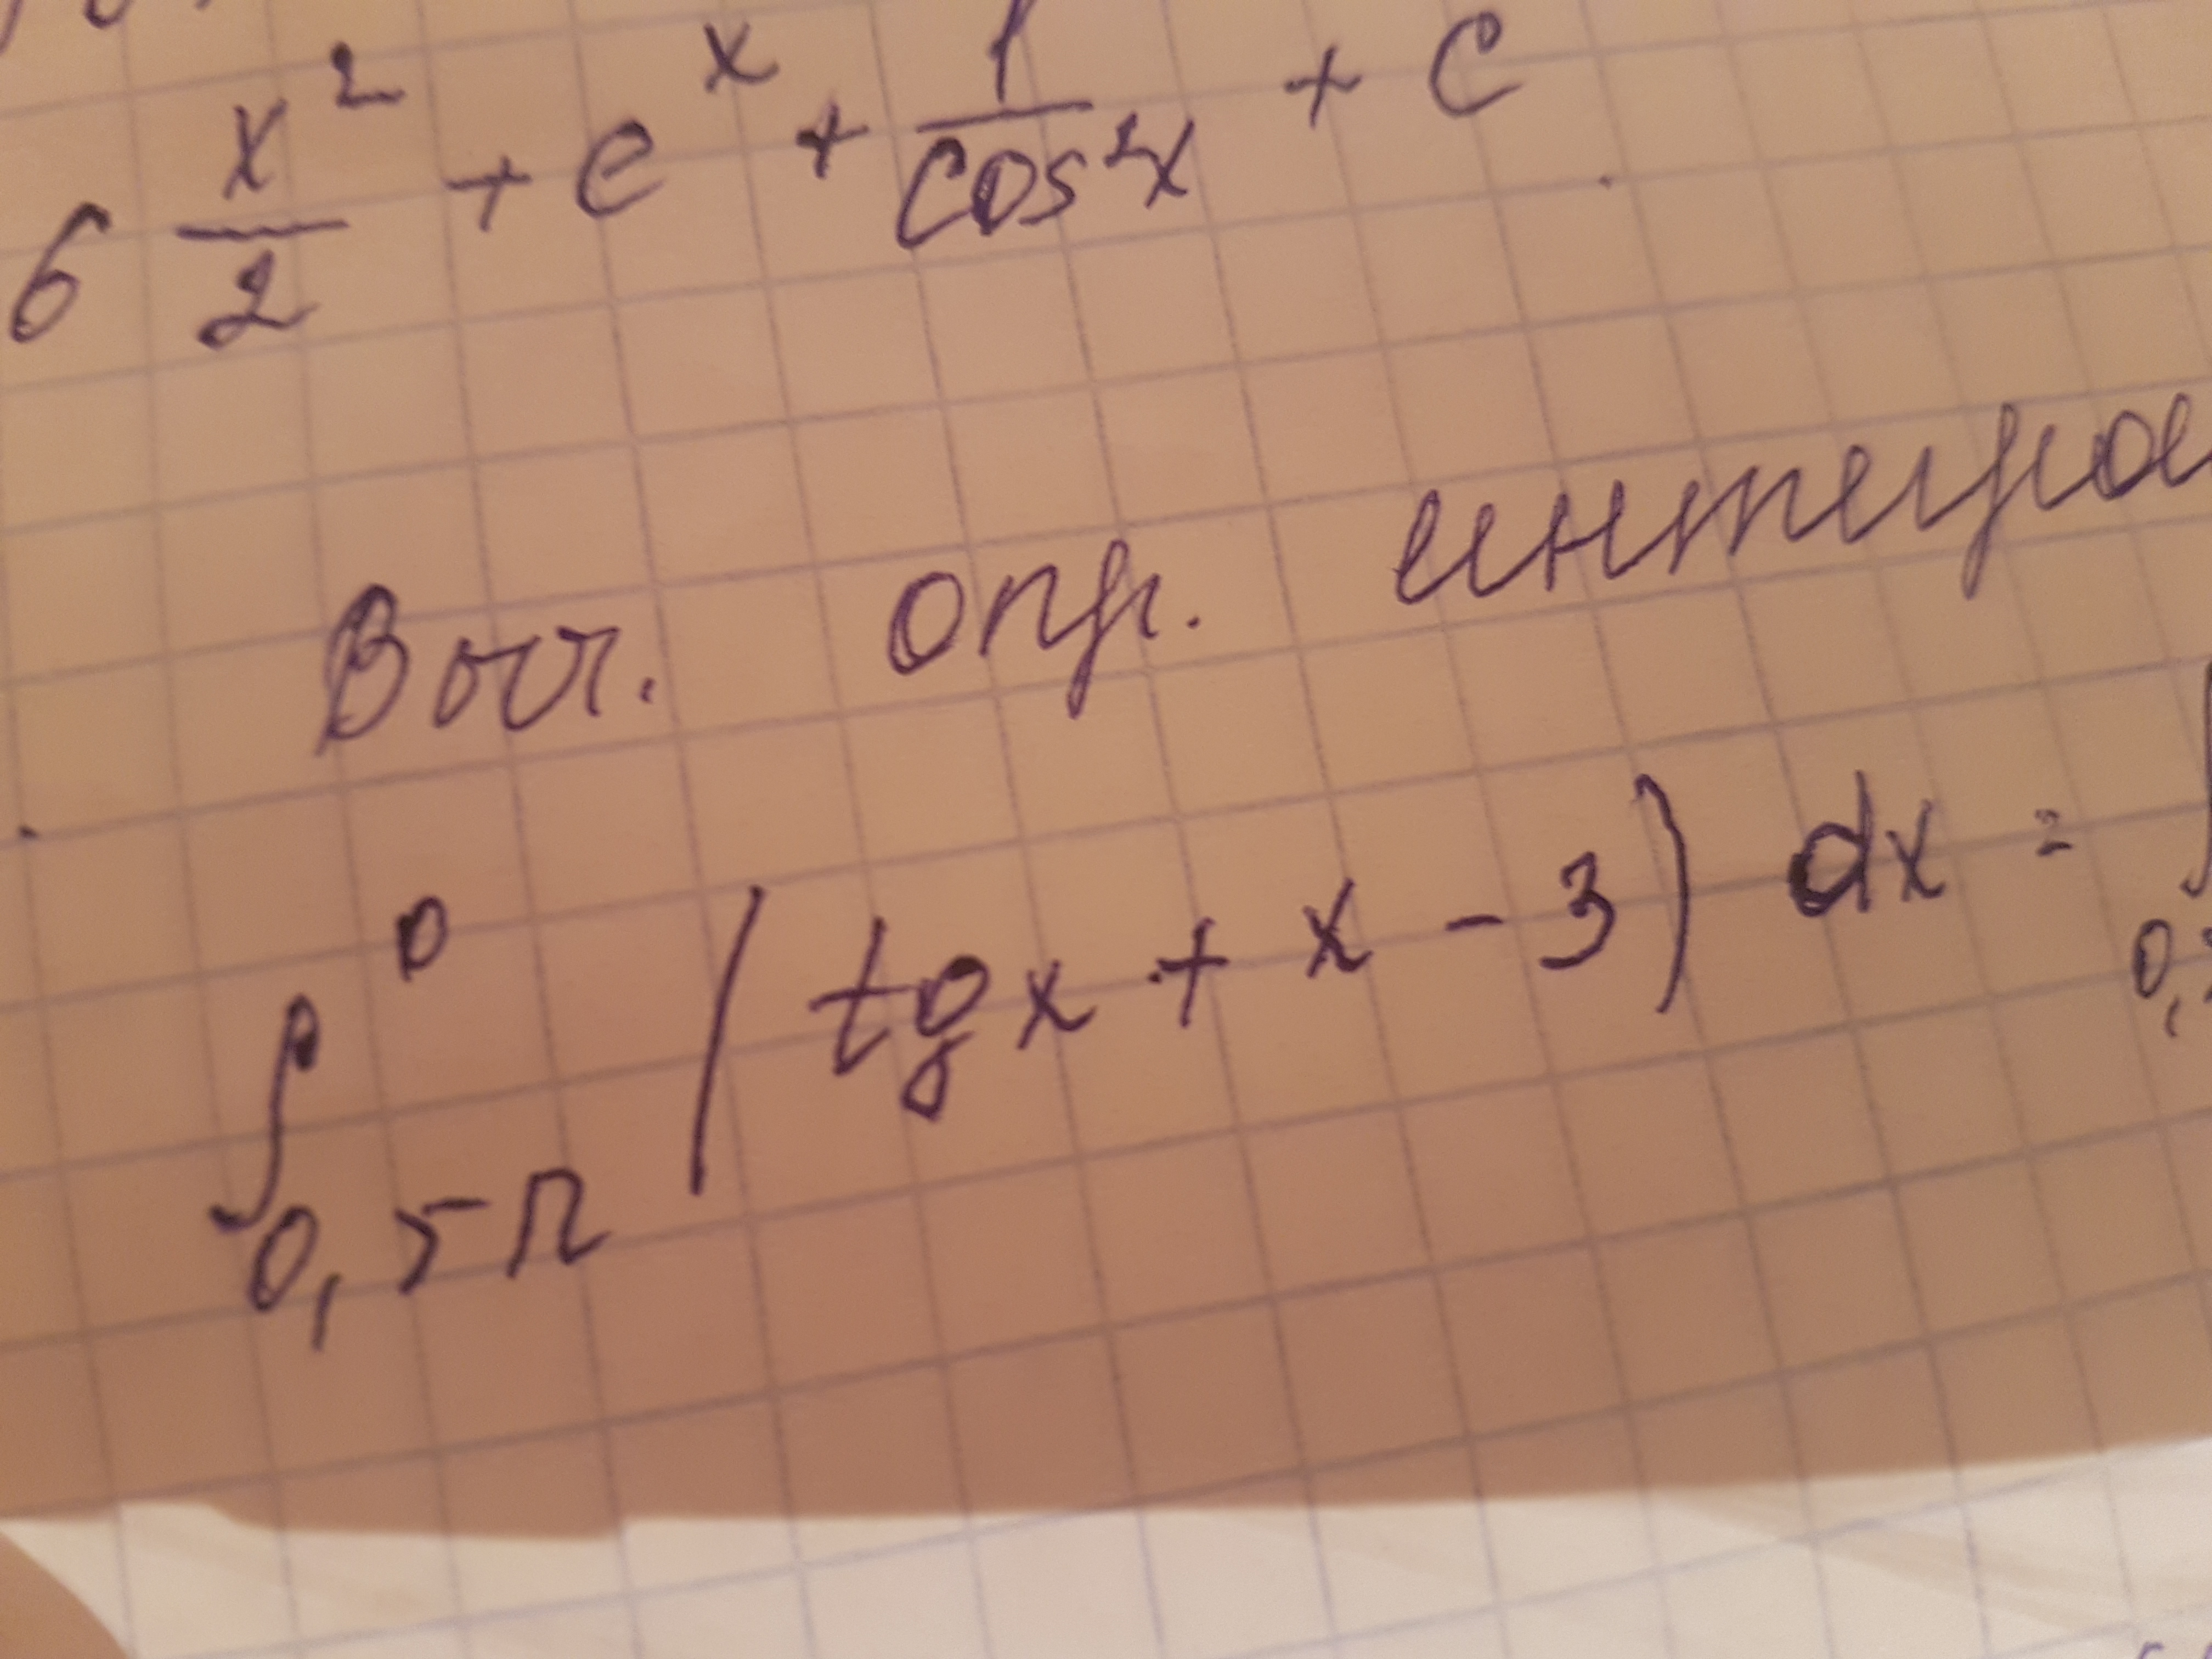 6 x²/2 + e^x + 1/cos²x + C
Выч. опр. интеграл
∫_{0,5π}^{0} (tg x + x - 3) dx = ∫
0,5